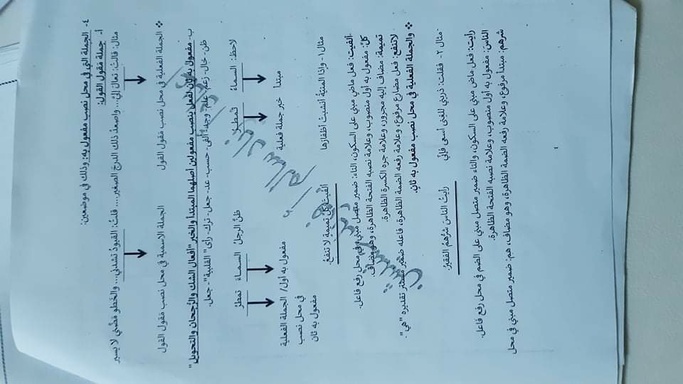 ٤- الجملة التي في محل نصب مفعول به: وذلك في موضعين:
أ- جملة مقول القول:
مثال: قالتْ: تعالَ إليّ... واصعدْ ذلك الدرجَ الصغير.... قلتُ: القيودُ تشدني... والخطو مضنى لا يسير
الجملة الفعلية في محل نصب مقول القول
الجملة الاسمية في محل نصب مقول القول
ب- مفعول به ثانٍ لفعل ينصب مفعولين أصلهما المبتدأ والخبر "أفعال الشك والرجحان والتحويل"
ظن- خال- زعم- علم- وجد- ألفى- حسب- عد- جعل- ترك- رأى "القلبية"- جعل.
لاحظ: السماءُ تمطرُ
ظنّ الرجلُ السماءَ تمطرُ
مبتدأ خبر جملة فعلية
مفعول به أول/ الجملة الفعلية
في محل نصب
مفعول به ثان
مثال ١- وإذا المنيّةُ أنشبتْ أظفارها ألفيتَ كلَّ تميمةٍ لا تنفعُ
ألفيتَ: فعل ماضي مبني على السكون، التاء: ضمير متصل مبني في محل رفع فاعل.
كلَّ: مفعول به أول منصوب، وعلامة نصبه الفتحة الظاهرة، وهو مضاف.
تميمة: مضاف إليه مجرور، وعلامة جره الكسرة الظاهرة.
لا تنفع: فعل مضارع مرفوع، وعلامة رفعه الضمة الظاهرة، فاعله ضمير مستتر تقديره "هي".
❖ والجملة الفعلية في محل نصب مفعول به ثانٍ.
مثال ٢- فقلت: ذريني للغنى أسعى فإني رأيتُ الناسَ شرّهم الفقيرُ
رأيت: فعل ماضي مبني على السكون، والتاء ضمير متصل مبني على الضم في محل رفع فاعل.
الناسَ: مفعول به أول منصوب، وعلامة نصبه الفتحة الظاهرة.
شرهم: مبتدأ مرفوع، وعلامة رفعه الضمة الظاهرة، وهو مضاف، هم: ضمير متصل مبني في محل